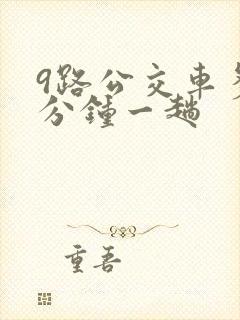 9路公交车
分钟一趟
重吾